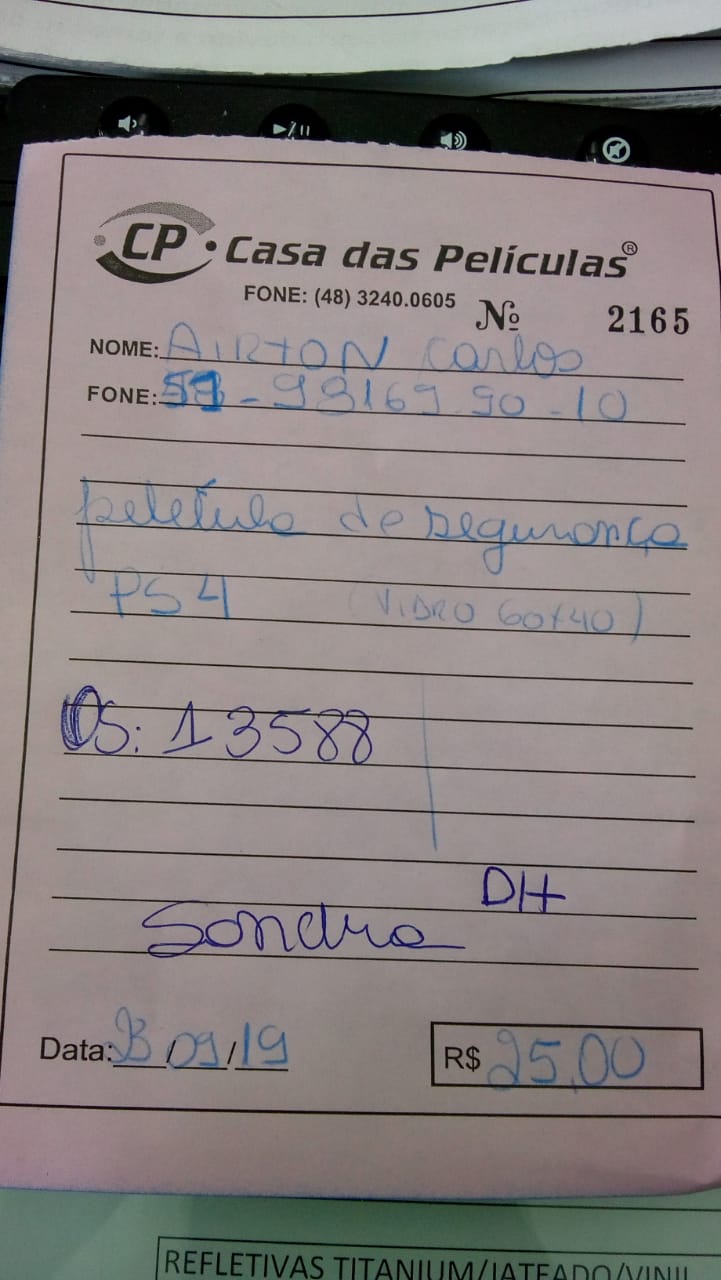 CP • Casa das Películas®
FONE: (48) 3240.0605 Nº 2165
NOME: AIRTON Carlos
FONE: 51 - 98169.90-10
película de segurança
PS4 (VIDRO 60x40)
OS: 13588
DH
Sandra
Data: 23/09/19 R$ 25,00
REFLETIVAS TITANIUM/JATEADO/VINIL